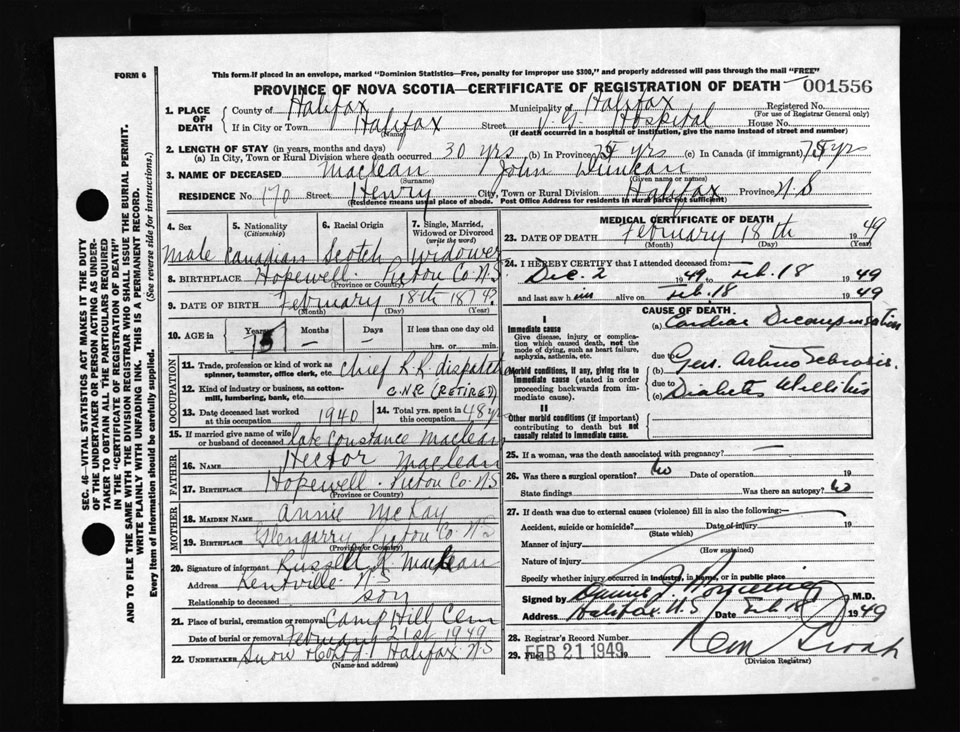 FORM 6
This form if placed in an envelope, marked "Dominion Statistics—Free, penalty for improper use $300," and properly addressed will pass through the mail "FREE"
PROVINCE OF NOVA SCOTIA—CERTIFICATE OF REGISTRATION OF DEATH 001556
1. PLACE OF DEATH County of Halifax Municipality of Halifax Registered No.
(For use of Registrar General only)
If in City or Town Halifax Street V. G. Hospital House No.
(Name) (If death occurred in a hospital or institution, give the name instead of street and number)
2. LENGTH OF STAY (in years, months and days)
(a) In City, Town or Rural Division where death occurred 30 yrs (b) In Province yrs (c) In Canada (if immigrant) yrs
3. NAME OF DECEASED Maclean John Duncan
(Surname) (Given name or names)
RESIDENCE No. 170 Street Henry City, Town or Rural Division Halifax Province N.S
(Residence means usual place of abode. Post Office Address for residents in rural parts not sufficient)
4. Sex 5. Nationality (Citizenship) 6. Racial Origin 7. Single, Married, Widowed or Divorced (write the word)
Male Canadian Scotch Widower
8. BIRTHPLACE Hopewell Pictou Co. N.S
(Province or Country)
9. DATE OF BIRTH February 18th 187
(Month) (Day) (Year)
10. AGE in Years Months Days If less than one day old
— — hrs. or min.
OCCUPATION
11. Trade, profession or kind of work as spinner, teamster, office clerk, etc. Chief R.R. dispatch
12. Kind of industry or business, as cotton-mill, lumbering, bank, etc. C.N.R (RETIRED)
13. Date deceased last worked at this occupation 1940 14. Total yrs. spent in this occupation 48 yrs
15. If married give name of wife or husband of deceased late Constance Maclean
FATHER
16. NAME Hector Maclean
17. BIRTHPLACE Hopewell Pictou Co. N.S
(Province or Country)
MOTHER
18. MAIDEN NAME Annie McKay
19. BIRTHPLACE Glengarry Pictou Co N.S
(Province or Country)
20. Signature of informant Russell Maclean
Address Kentville N.S
Relationship to deceased son
21. Place of burial, cremation or removal Camp Hill Cem
Date of burial or removal February 21st 1949
22. UNDERTAKER Snow & Co Ltd. Halifax N.S
(Name and address)
MEDICAL CERTIFICATE OF DEATH
23. DATE OF DEATH February 18th 1949
(Month) (Day) (Year)
24. I HEREBY CERTIFY that I attended deceased from:
Dec. 2 1949 to Feb. 18 1949
and last saw him alive on Feb. 18 1949
CAUSE OF DEATH
I
Immediate cause (a) Cardiac Decompensation
Give disease, injury or complication which caused death, not the mode of dying, such as heart failure, asphyxia, asthenia, etc.
due to Gen. Arterio Sclerosis
Morbid conditions, if any, giving rise to immediate cause (stated in order proceeding backwards from immediate cause).
due to (c) Diabetes Mellitus
II
Other morbid conditions (if important) contributing to death but not causally related to immediate cause.
25. If a woman, was the death associated with pregnancy? —
26. Was there a surgical operation? No Date of operation 19
State findings Was there an autopsy? No
27. If death was due to external causes (violence) fill in also the following:—
Accident, suicide or homicide? Date of injury 19
(State which)
Manner of injury
(How sustained)
Nature of injury
Specify whether injury occurred in industry, in home, or in public place
Signed by M.D.
Address Halifax N.S Date Feb 18 1949
28. Registrar's Record Number
29. Filed FEB 21 1949 19
(Division Registrar)
SEC. 46—VITAL STATISTICS ACT MAKES IT THE DUTY
OF THE UNDERTAKER OR PERSON ACTING AS UNDERTAKER
TO OBTAIN ALL THE PARTICULARS REQUIRED
IN THE "CERTIFICATE OF REGISTRATION OF DEATH"
AND TO FILE THE SAME WITH THE DIVISION REGISTRAR WHO SHALL ISSUE THE BURIAL PERMIT.
WRITE PLAINLY WITH UNFADING INK. THIS IS A PERMANENT RECORD.
Every item of Information should be carefully supplied. (See reverse side for instructions.)